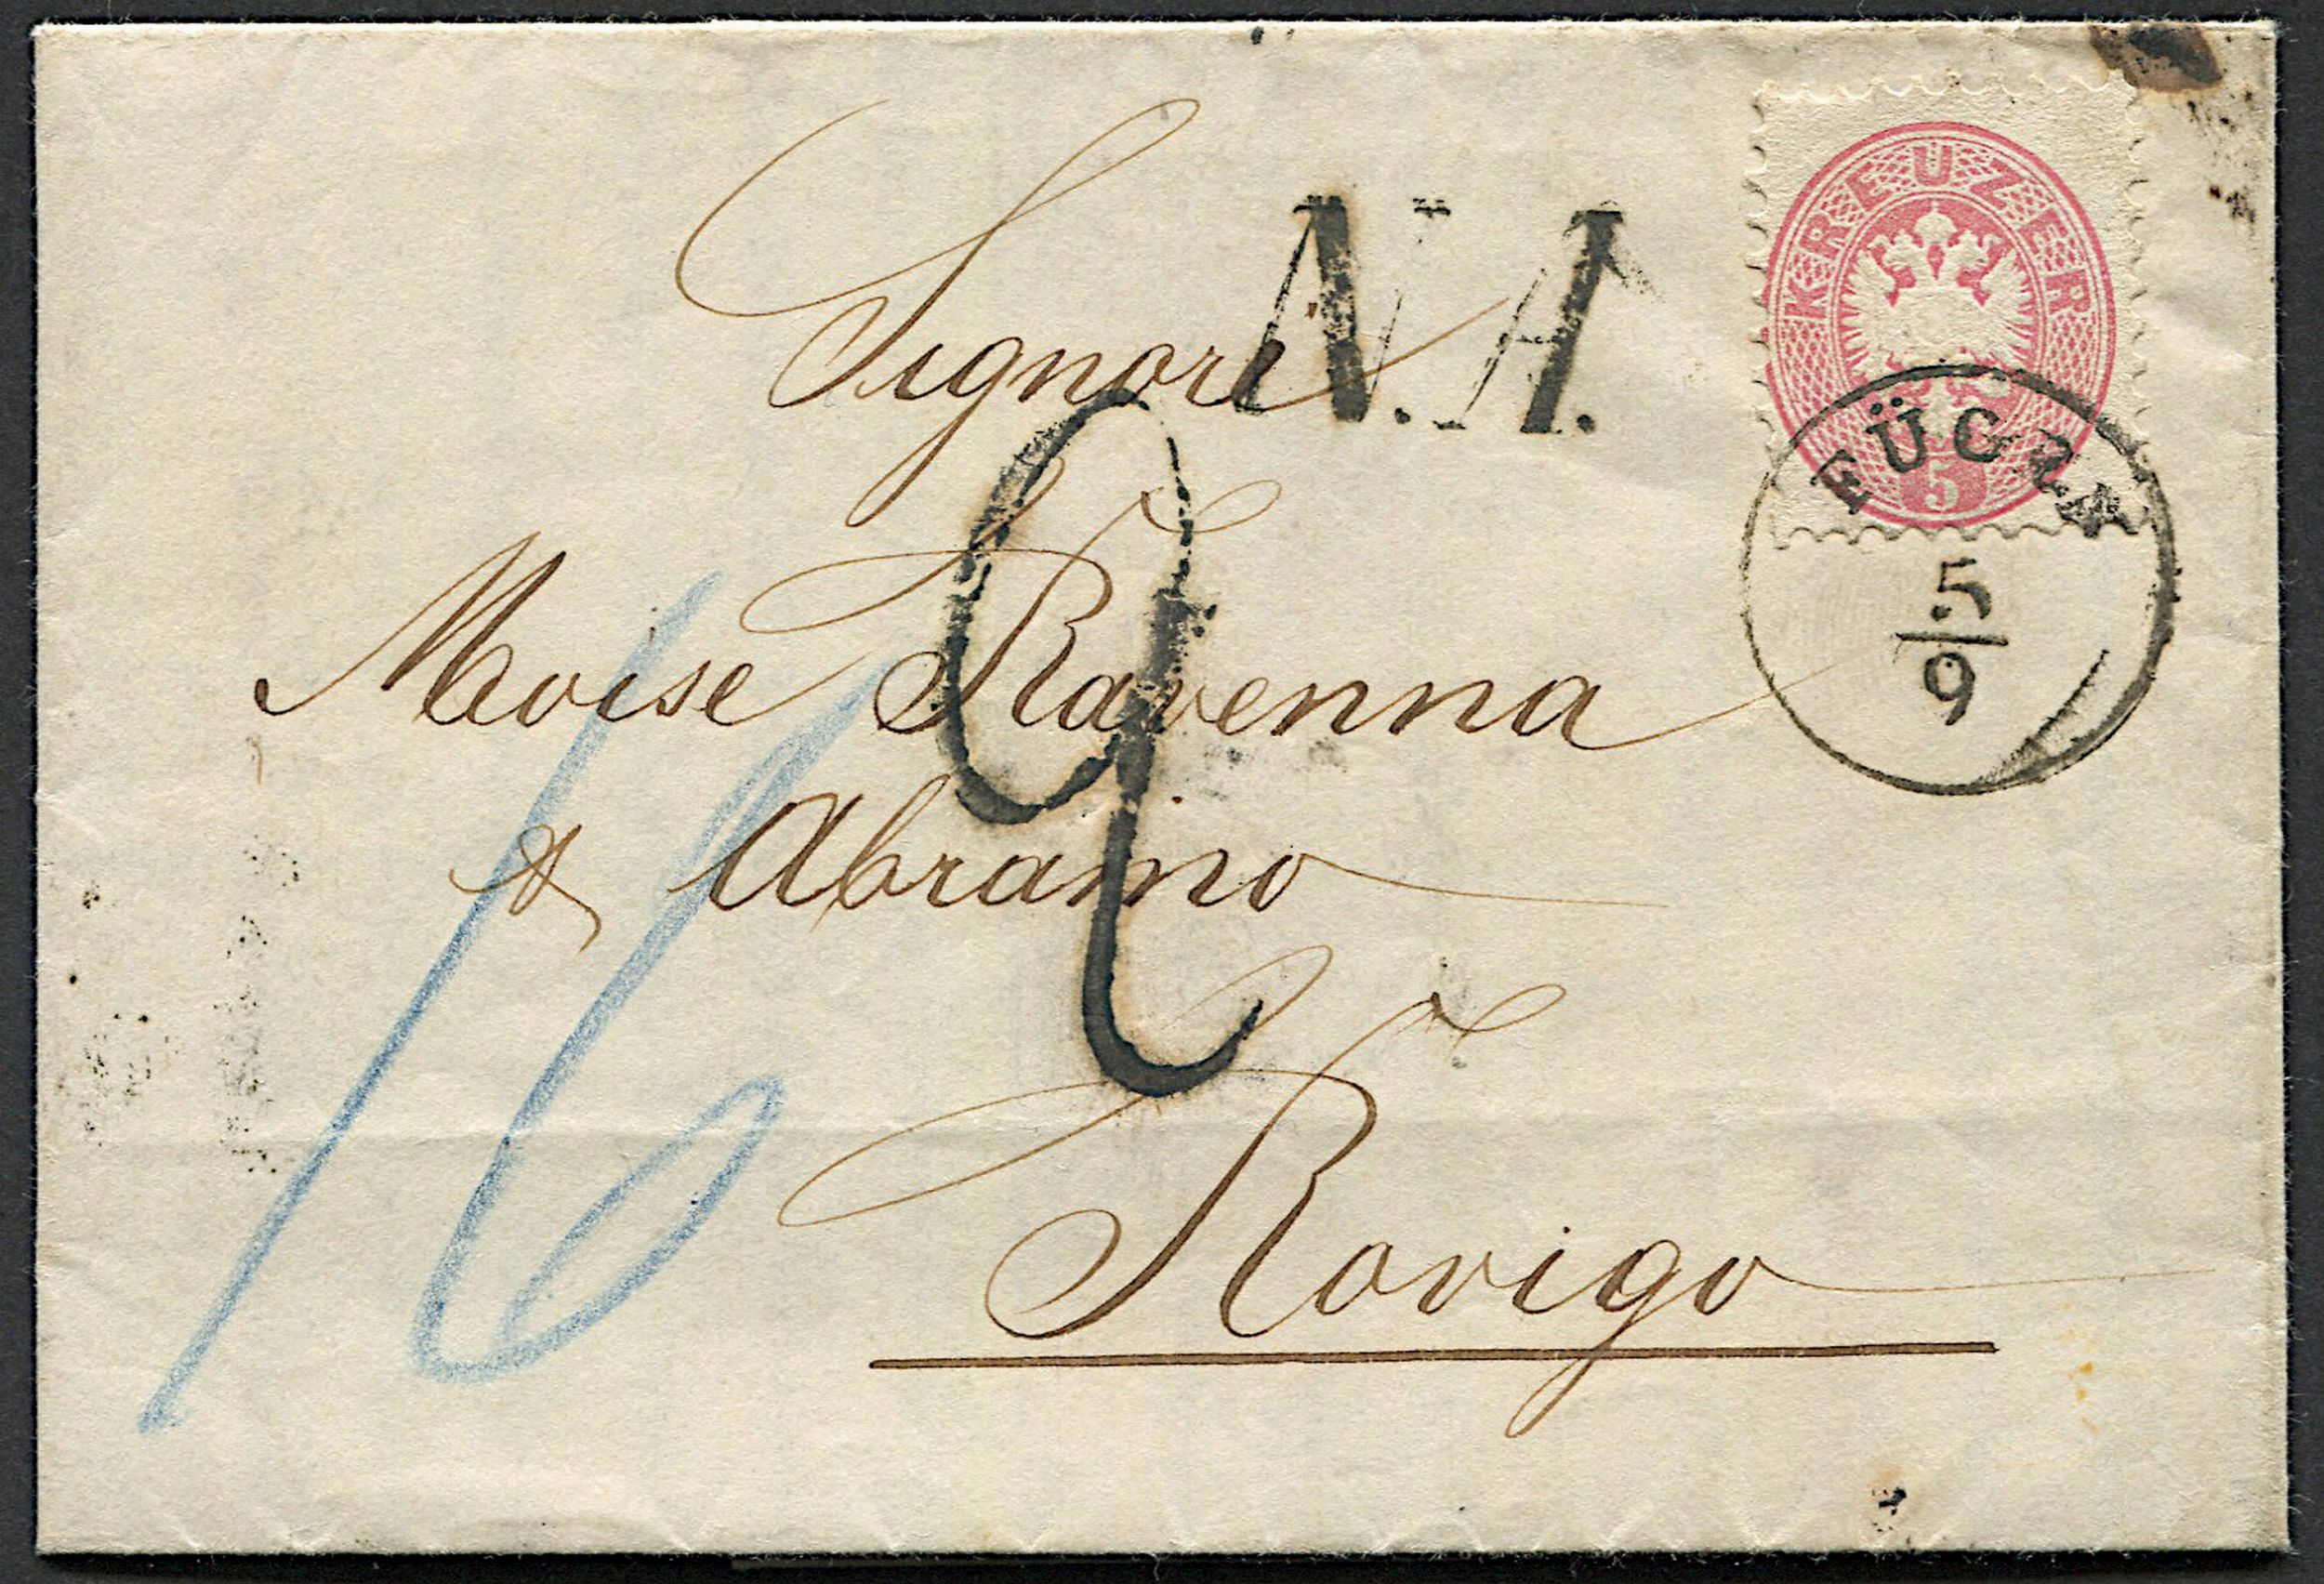 Signori
N.A.
KREUZER
5
FÜGEN
5
9
Moise Ravenna
& Abramo
9
16
Rovigo